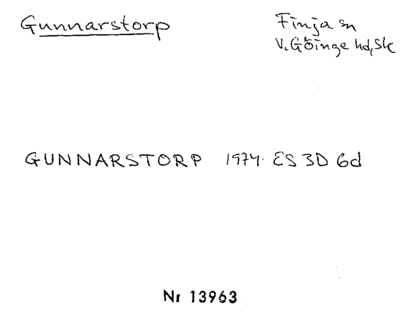 Gunnarstorp
Finja sn
V. Göinge hd, Sk
GUNNARSTORP 1974 ES 3D 6d
Nr 13963